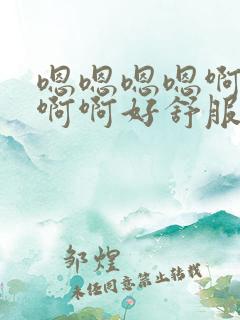 嗯嗯嗯嗯啊
啊啊好舒服
邹煌
未经同意禁止转载